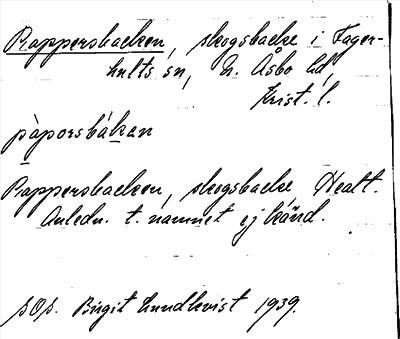 Pappersbacken, skogsbacke i Fager-
hults sn, N. Åsbo hd,
Krist. l.
pàporsbákan
Pappersbacken, skogsbacke, Healt.
Anledn. t. namnet ej känd.
SOS. Birgit Lundkvist 1939.